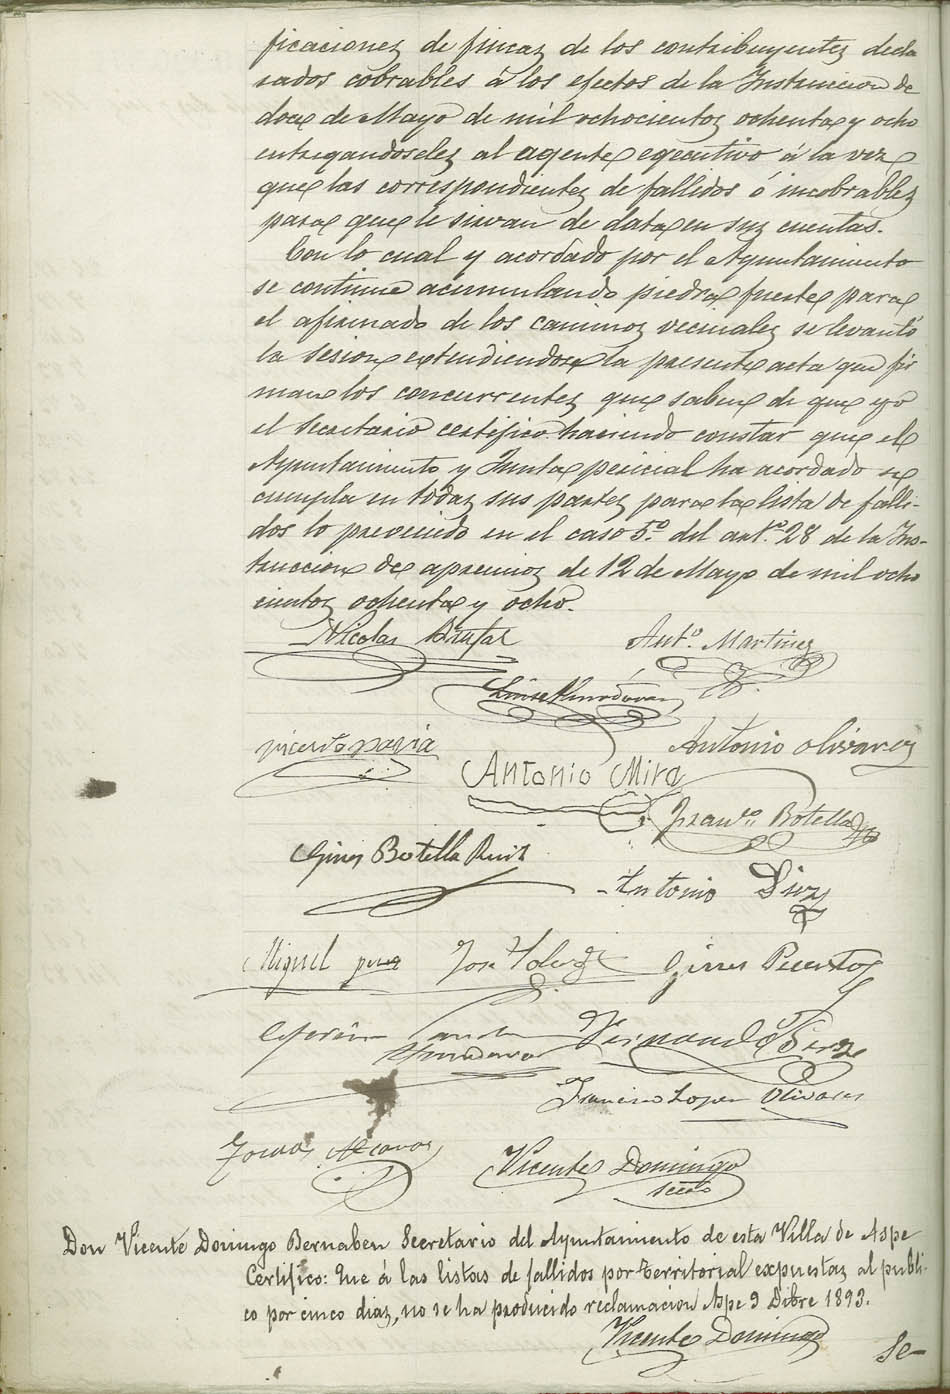 ficaciones de fincas de los contribuyentes decla
rados cobrables á los efectos de la Instruccion de
doce de Mayo de mil ochocientos ochenta y ocho
entregandoseles al agente egecutivo á la vez
que las correspondientes de fallidos ó incobrables
para que le sirvan de data en sus cuentas.
Con lo cual y acordado por el Ayuntamiento
se continue acumulando piedra fuerte para
el afirmado de los caminos vecinales se levantó
la sesion extendiendose la presente acta que fir
man los concurrentes que saben de que yo
el Secretario certifico haciendo constar que el
Ayuntamiento y Junta pericial ha acordado se
cumpla en todas sus partes para la lista de falli-
dos lo prevenido en el caso 5.º del art.º 28 de la Ins-
truccion de apremios de 12 de Mayo de mil ocho
cientos ochenta y ocho.
Nicolas Brufal Ant.º Martinez
Luis Almodovar
vicente pavia Antonio Olivares
Antonio Mira
Fran.co Botella
Gines Botella Ruiz
Antonio Diez
Miguel perez Jose Gines Puerto
Almodovar
Francisco Lopez Olivares
Tomas Alcaraz Vicente Domingo
secrio
Don Vicente Domingo Bernabeu Secretario del Ayuntamiento de esta Villa de Aspe
Certifico: Que á las listas de fallidos por territorial expuestas al publi-
co por cinco dias, no se ha producido reclamacion Aspe 9 Dibre 1893.
Vicente Domingo
Se-